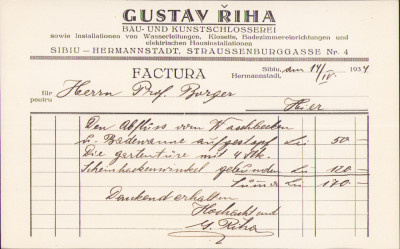 GUSTAV ŘIHA
BAU- UND KUNSTSCHLOSSEREI
sowie Installationen von Wasserleitungen, Klosette, Badezimmereinrichtungen und
elektrischen Hausinstallationen
SIBIU - HERMANNSTADT, STRAUSSENBURGGASSE Nr. 4
Sibiu,
Hermannstadt, den 14/IV. 1934
FACTURA
für
pentru Herrn Prof. Borger
Hier
Den Abfluss vom Waschbecken
u. Badewanne aufgestopf Lei 50 —
Die gartentüre mit 4 Stk.
gebunden Lei 120 —
Suma Lei 170 —
Dankend erhalten
Hochachtend
G. Řiha